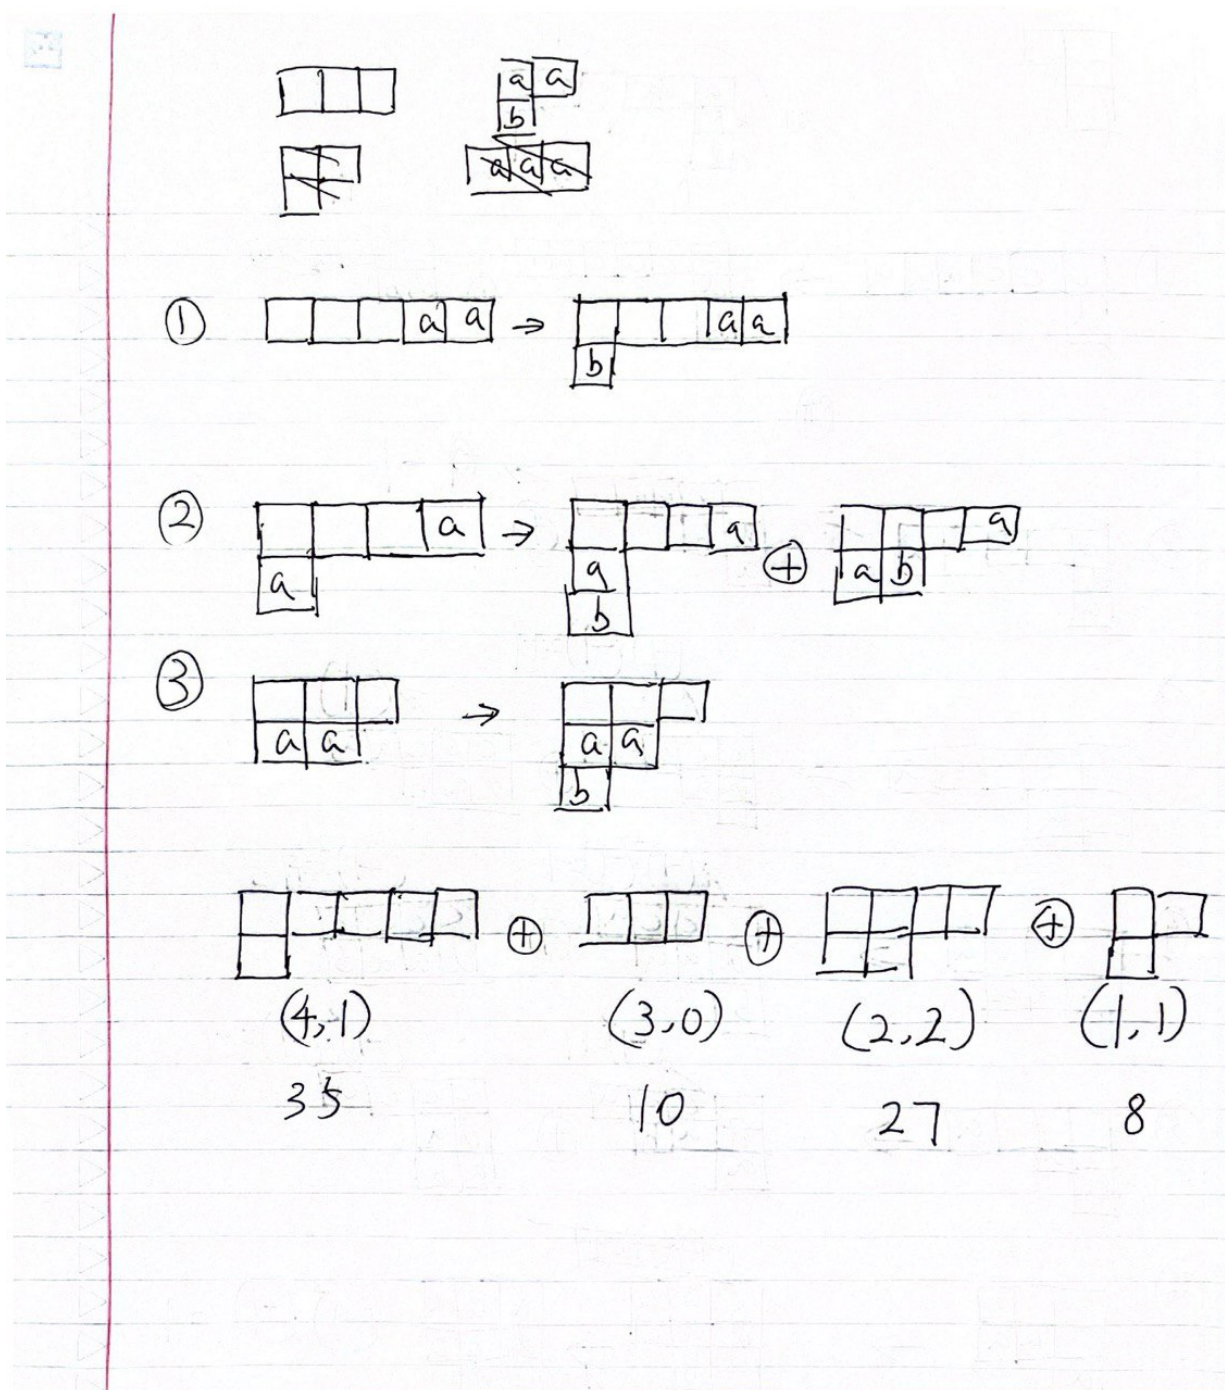 a a
b
a a a
① a a → a a
b
② a → a ⊕ a
a a a b
b
③ →
a a a a
b
⊕ ⊕ ⊕
(4,1) (3,0) (2,2) (1,1)
35 10 27 8